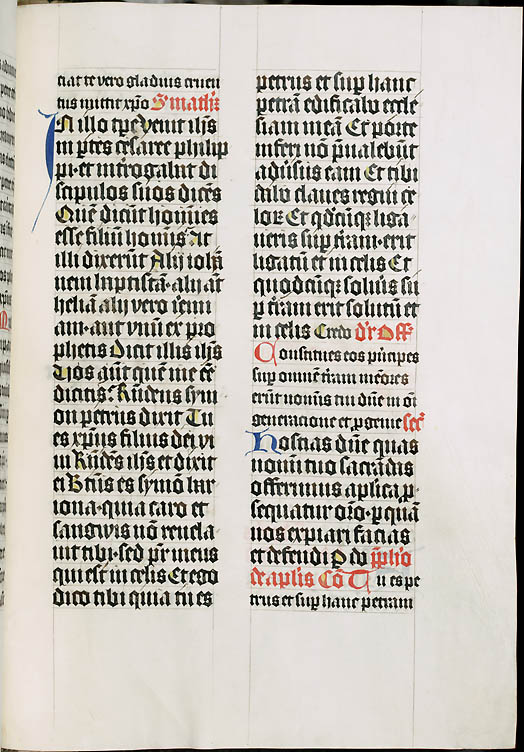 ciat te vero gladius cruen
tus mittit xp̄o S̄ math̄
In illo tp̄e Venit ih̄s
in ptes cesaree philip
pi et int̄rogabat di
scipulos suos dicēs
Quē dicūt homines
esse filiū hominis At
illi dixerūt Alij ioh̄
nem baptistā alij at̄
heliā alij vero ieremi
am aut vnū ex pro
phetis Dicit illis ih̄s
Vos aūt quē me eē
dicitis Rn̄dens sym
on petrus dixit Tu
es xp̄us filius dei vi
ui Rn̄dēs ih̄s et dixit
ei Btūs es symō bar
iona quia caro et
sangwis nō reuela
uit tibi sed pr̄ meus
qui est in celis Et ego
dico tibi quia tu es
petrus et sup hanc
petrā edificabo eccle
siam meā Et porte
inferi nō p̄ualebūt
adūsus eam Et tibi
dabo claues regni ce
loꝝ Et qdcūqꝫ liga
ueris sup t̄ram erit
ligatū et in celis Et
quodcūqꝫ soluis su
p t̄ram erit solutū et
in celis Credo Off
Constitues eos p̄ncipes
sup omnē t̄ram mēores
erūt nominis tui dn̄e in oī
generacione et pgenie secr̄
Hostias dn̄e quas
nomini tuo sacrādas
offerimus aplica p
sequatur or̄o p quā
nos expiari facias
et defendi
de ap̄lis Cō Tu es pe
trus et sup hanc petram